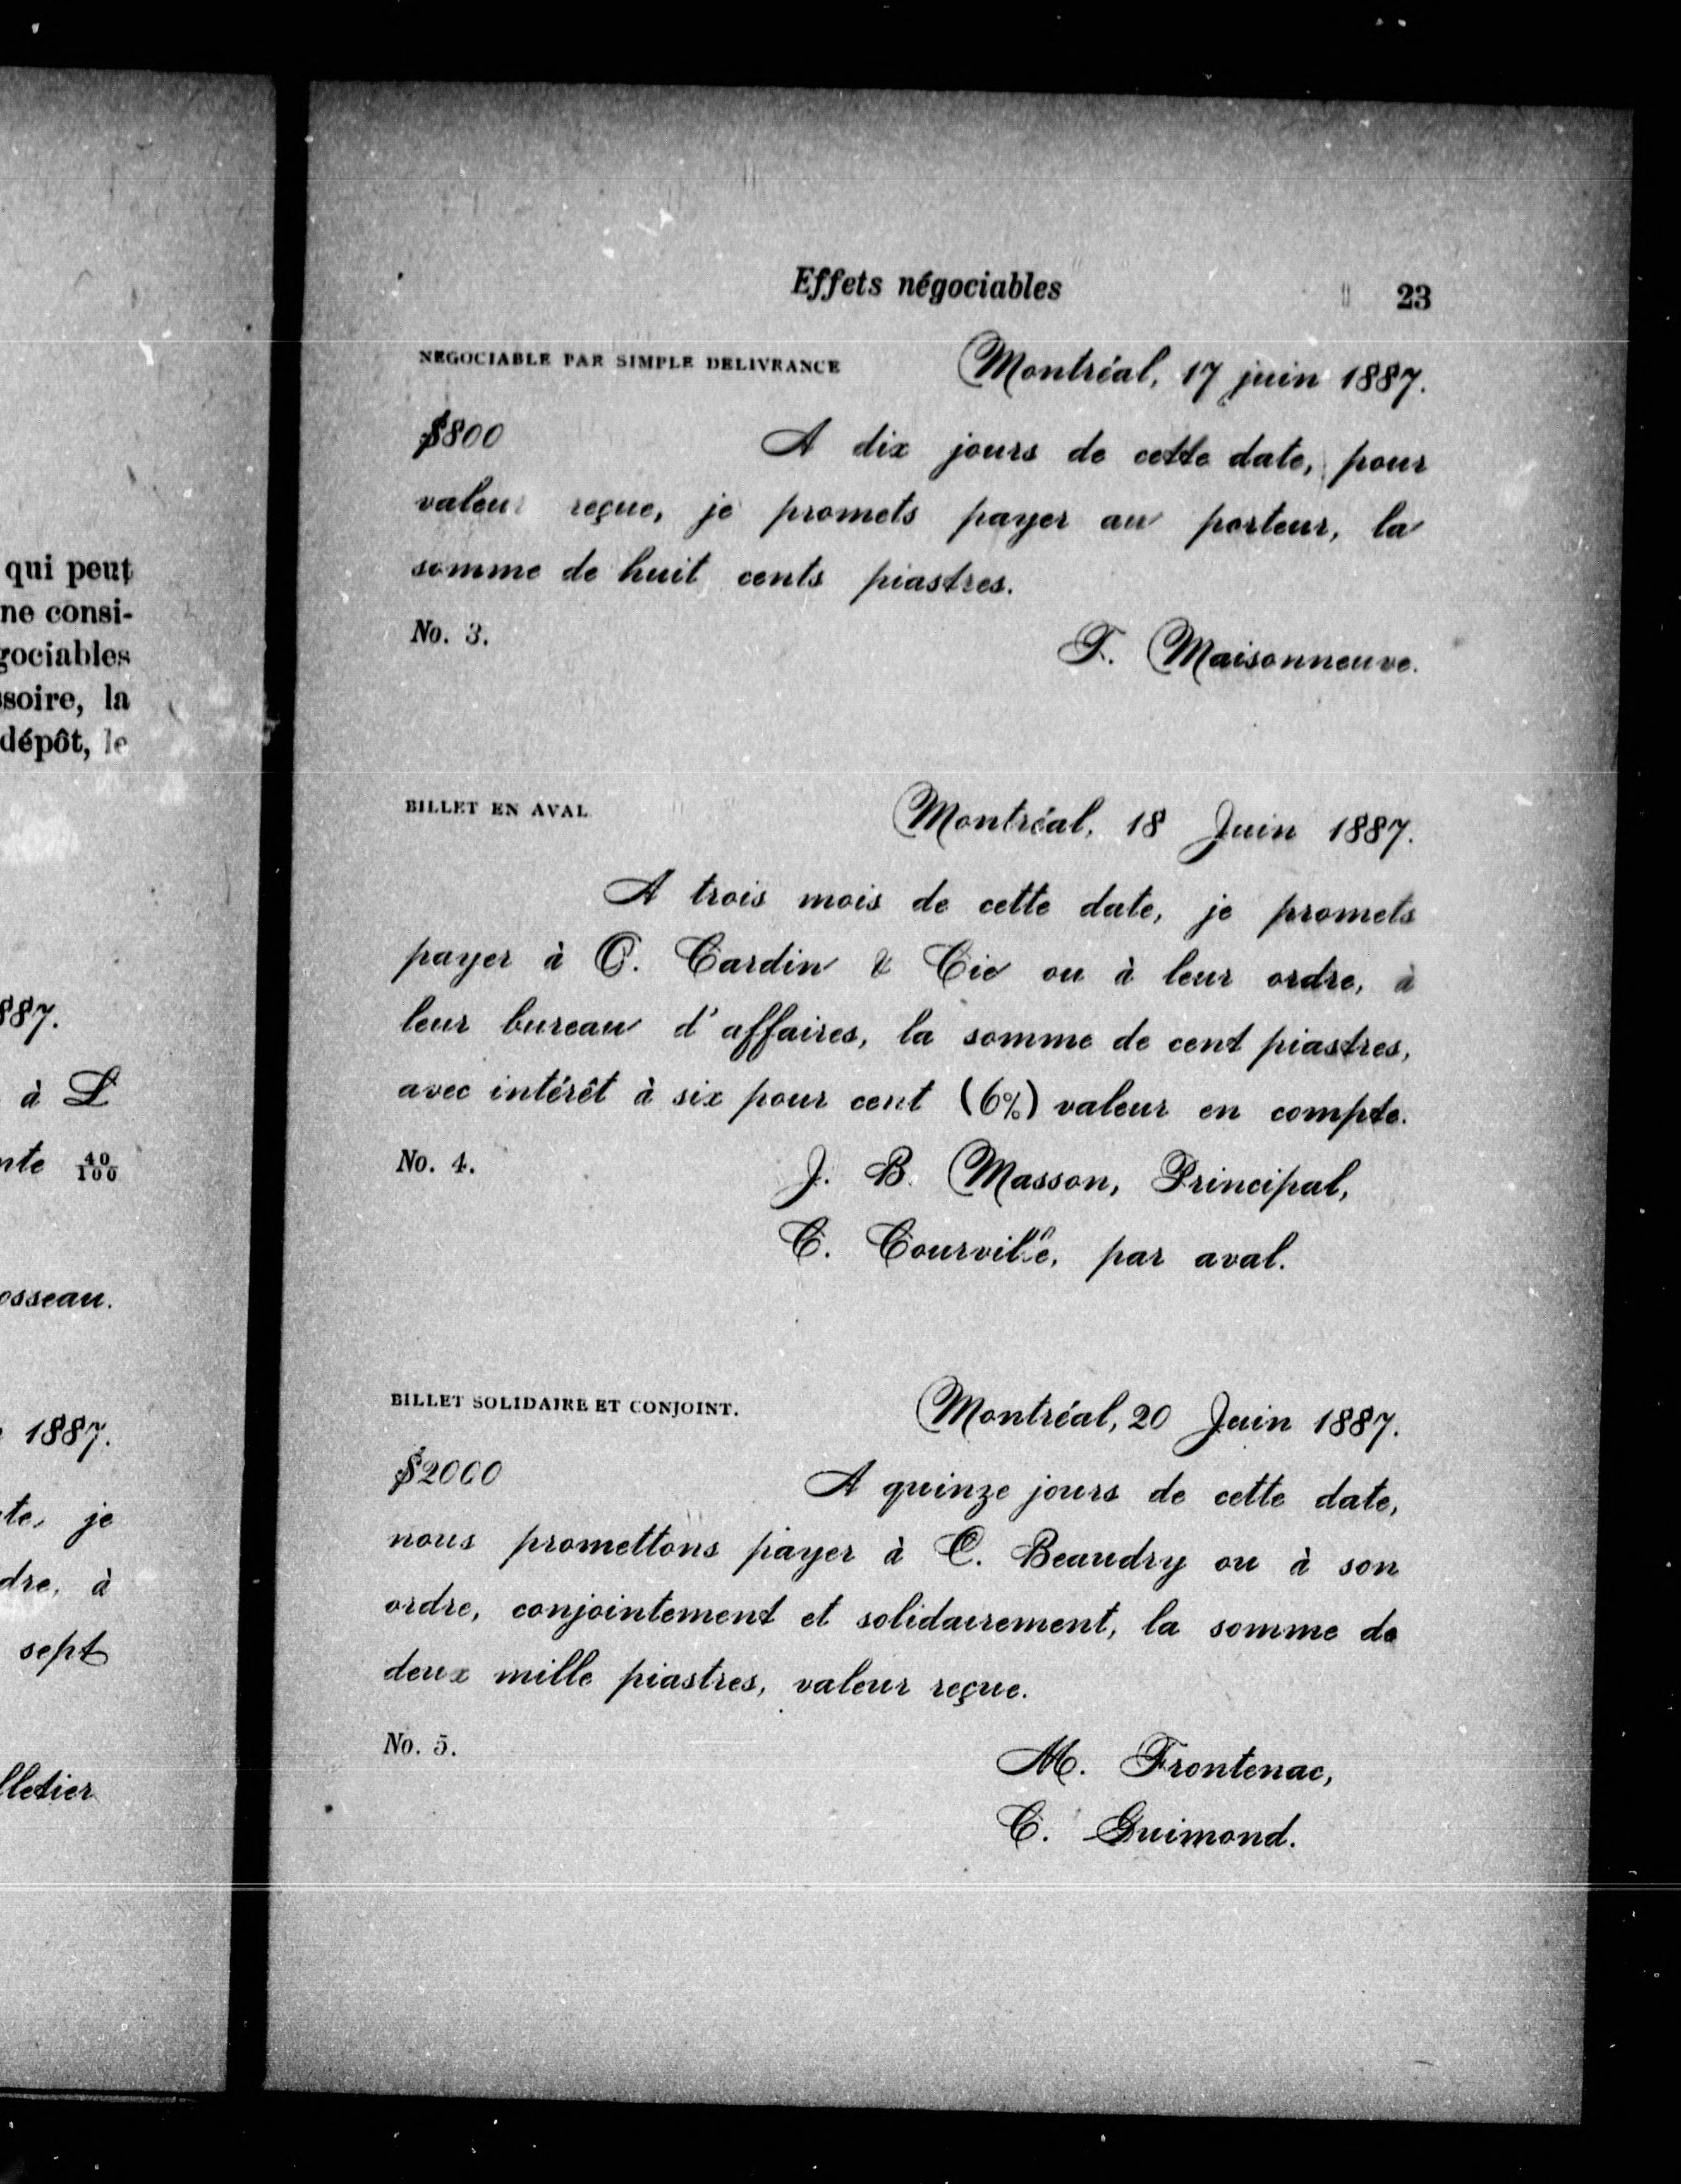 qui peut
ne consi-
gociables
ssoire, la
dépôt, le
887.
à L
nte 40/100
osseau.
1887.
te, je
dre, à
sept
lletier
Effets négociables 23
NEGOCIABLE PAR SIMPLE DELIVRANCE Montréal, 17 juin 1887.
$800 A dix jours de cette date, pour
valeur reçue, je promets payer au porteur, la
somme de huit cents piastres.
No. 3. F. Maisonneuve.
BILLET EN AVAL Montréal, 18 Juin 1887.
A trois mois de cette date, je promets
payer à O. Cardin & Cie ou à leur ordre, à
leur bureau d'affaires, la somme de cent piastres,
avec intérêt à six pour cent (6%) valeur en compte.
No. 4. J. B. Masson, Principal,
C. Courville, par aval.
BILLET SOLIDAIRE ET CONJOINT. Montréal, 20 Juin 1887.
$2000 A quinze jours de cette date,
nous promettons payer à C. Beaudry ou à son
ordre, conjointement et solidairement, la somme de
deux mille piastres, valeur reçue.
No. 5. M. Frontenac,
C. Guimond.